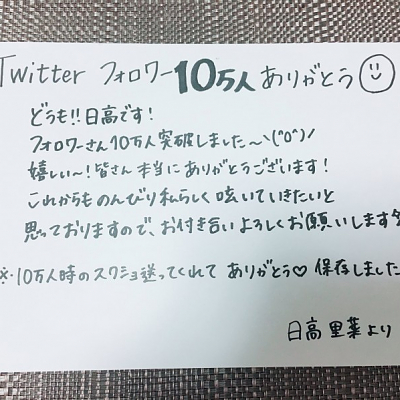 Twitter フォロワー10万人ありがとう
どうも!!日高です!
フォロワーさん10万人突破しました〜ヽ(^o^)ノ
嬉しい〜!皆さん本当にありがとうございます!
これからものんびり私らしく呟いていきたいと
思っておりますので、お付き合いよろしくお願いします
※10万人時のスクショ送ってくれて ありがとう♡ 保存しました
日高里菜より